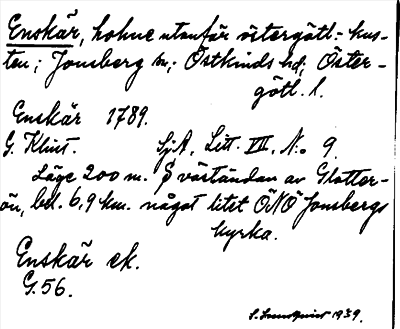 Enskär, holme utanför östergötl.-kus-
ten; Jonsberg sn; Östkinds hd; Öster-
götl. l.
Enskär 1789.
G. Klint. SjA. Litt. VII. N:o 9.
Läge 200 m. S väständan av Glotter-
ön, bel. 6,9 km. något litet ÖNÖ Jonsbergs
kyrka.
Enskär ek.
G. 56.
S. Lundqvist 1939.